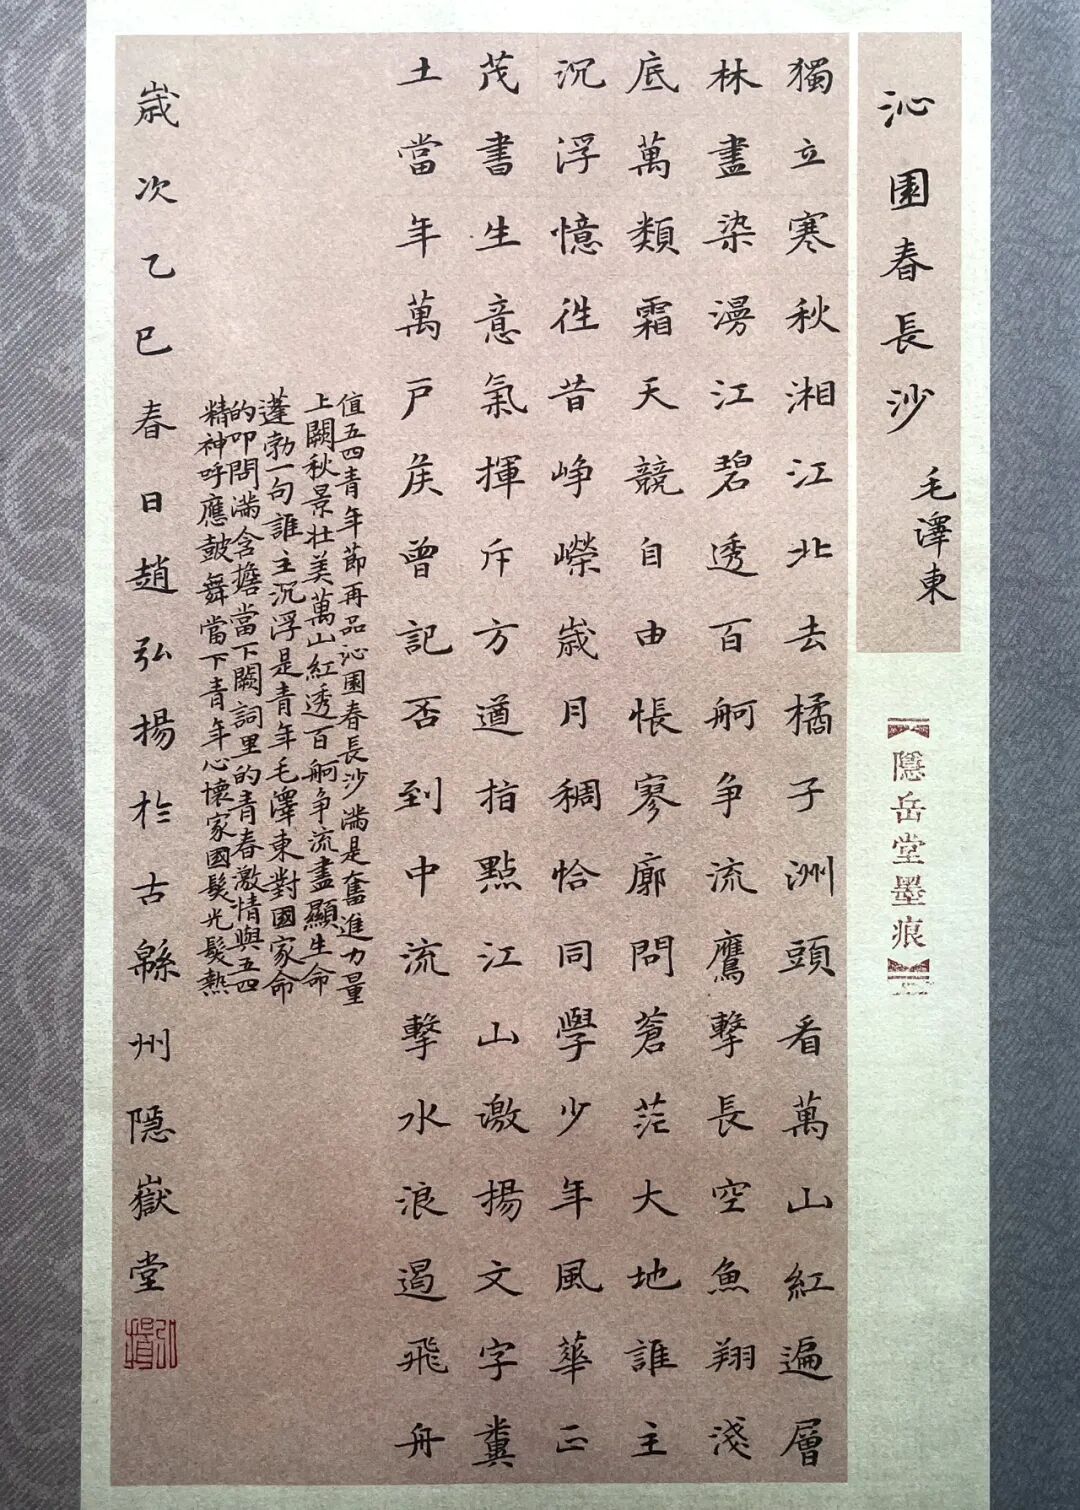 沁園春長沙
毛澤東
【隱岳堂墨痕】
獨立寒秋湘江北去橘子洲頭看萬山紅遍層
林盡染漫江碧透百舸争流鷹擊長空魚翔淺
底萬類霜天競自由悵寥廓問蒼茫大地誰主
沉浮憶往昔峥嶸歲月稠恰同學少年風華正
茂書生意氣揮斥方遒指點江山激揚文字糞
土當年萬戶侯曾記否到中流擊水浪遏飛舟
值五四青年節再品沁園春長沙滿是奮進力量
上闕秋景壯美萬山紅透百舸争流盡顯生命
蓬勃一句誰主沉浮是青年毛澤東對國家命
的叩問滿含擔當下闕詞里的青春激情與五四
精神呼應鼓舞當下青年心懷家國髮光髮熱
歲次乙巳春日趙弘揚於古緜州隱嶽堂
弘揚